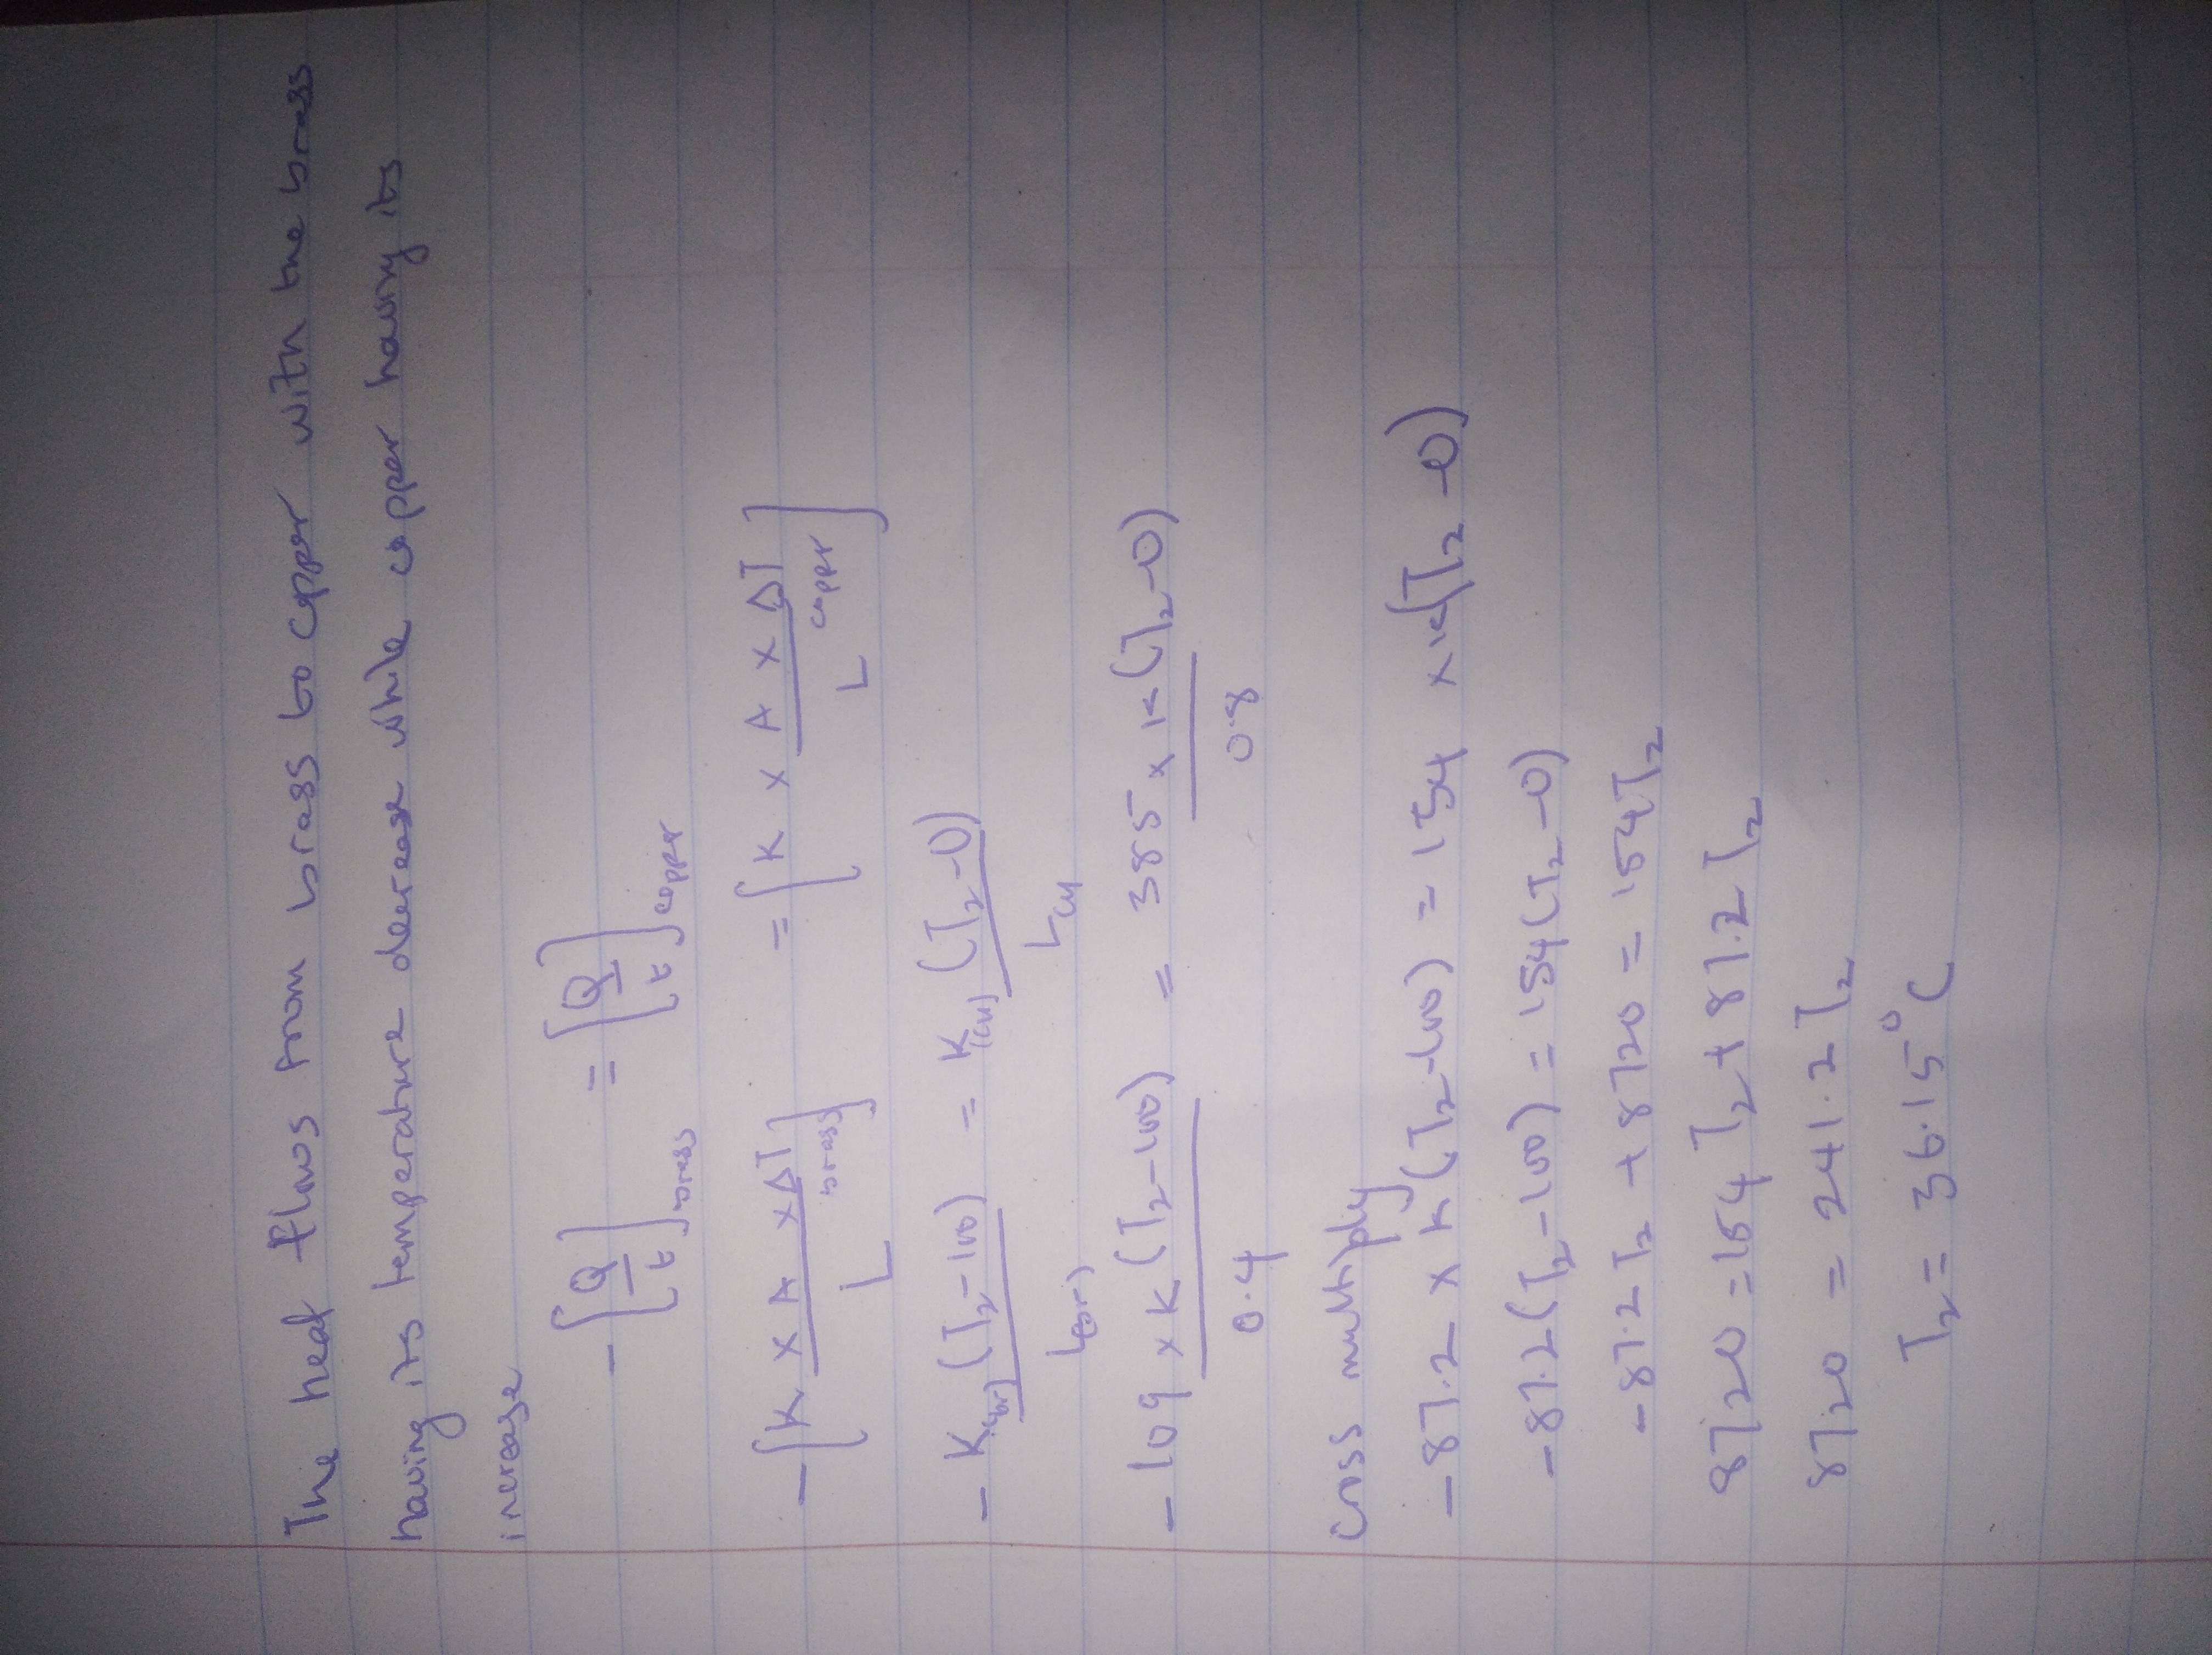 The heat flows from brass to copper with the brass
having its temperature decrease while copper having its
increase
- [Q/t]brass = [Q/t]copper
- [K x A x ΔT / L]brass = [K x A x ΔT / L]copper
- K(br) (T₂-100) / L(br) = K(cu) (T₂-0) / Lcu
- 109 x K (T₂-100) / 0.4 = 385 x K (T₂-0) / 0.8
Cross multiply
- 87.2 x K (T₂-100) = 154 x K (T₂-0)
- 87.2 (T₂-100) = 154 (T₂-0)
- 87.2 T₂ + 8720 = 154T₂
8720 = 154 T₂ + 87.2 T₂
8720 = 241.2 T₂
T₂ = 36.15°C